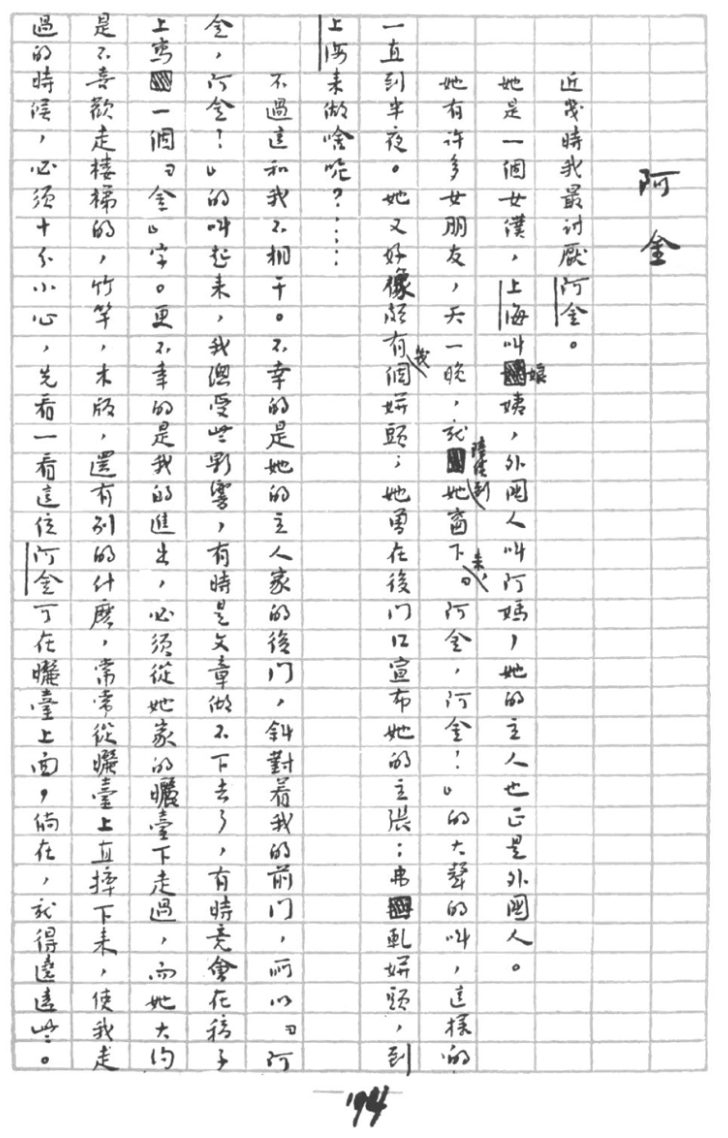 阿金
近幾時我最討厭阿金。
她是一個女僕，上海叫娘姨，外國人叫阿媽，她的主人也正是外國人。
她有許多女朋友，天一晚，就陸續到她窗下來，「阿金，阿金！」的大聲的叫，這樣的
一直到半夜。她又好像頗有幾個姘頭；她曾在後門口宣布她的主張：弗軋姘頭，到
上海來做啥呢？……
不過這和我不相干。不幸的是她的主人家的後門，斜對着我的前門，所以「阿
金，阿金！」的叫起來，我總受些影響，有時是文章做不下去了，有時竟會在稿子
上寫一個「金」字。更不幸的是我的進出，必須從她家的曬臺下走過，而她大約
是不喜歡走樓梯的，竹竿，木版，還有別的什麽，常常從曬臺上直摔下來，使我走
過的時候，必須十分小心，先看一看這位阿金可在曬臺上面，倘在，就得遶遠些。
194